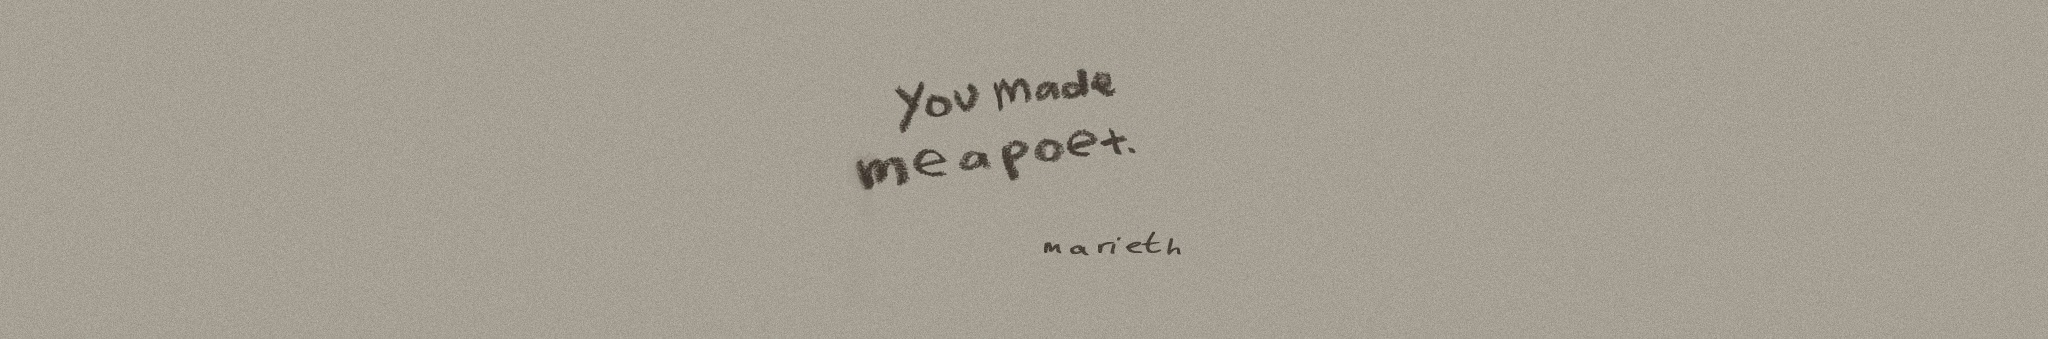 You made
me a poet.
marieth